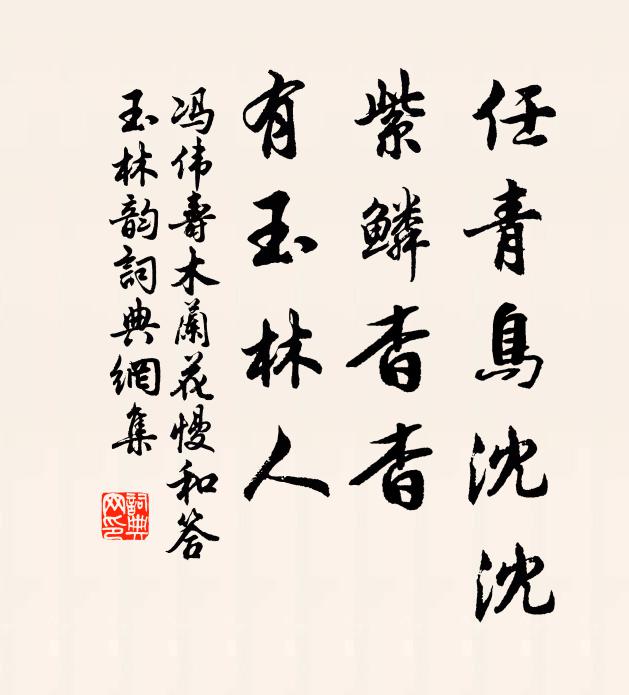 任青鳥沈沈
紫鱗杳杳
有玉林人
冯伟壽木蘭花慢和答
玉林韵詞典網集
詞典
网印